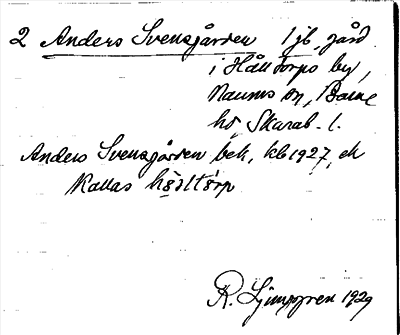 2 Anders Svensgården 1 jb, gård
i Hålltorps by,
Naums sn, Barne
hd, Skarab. l.
Anders Svensgården bek, kb 1927, ek
Kallas hö̀lltörp
R. Ljunggren 1929